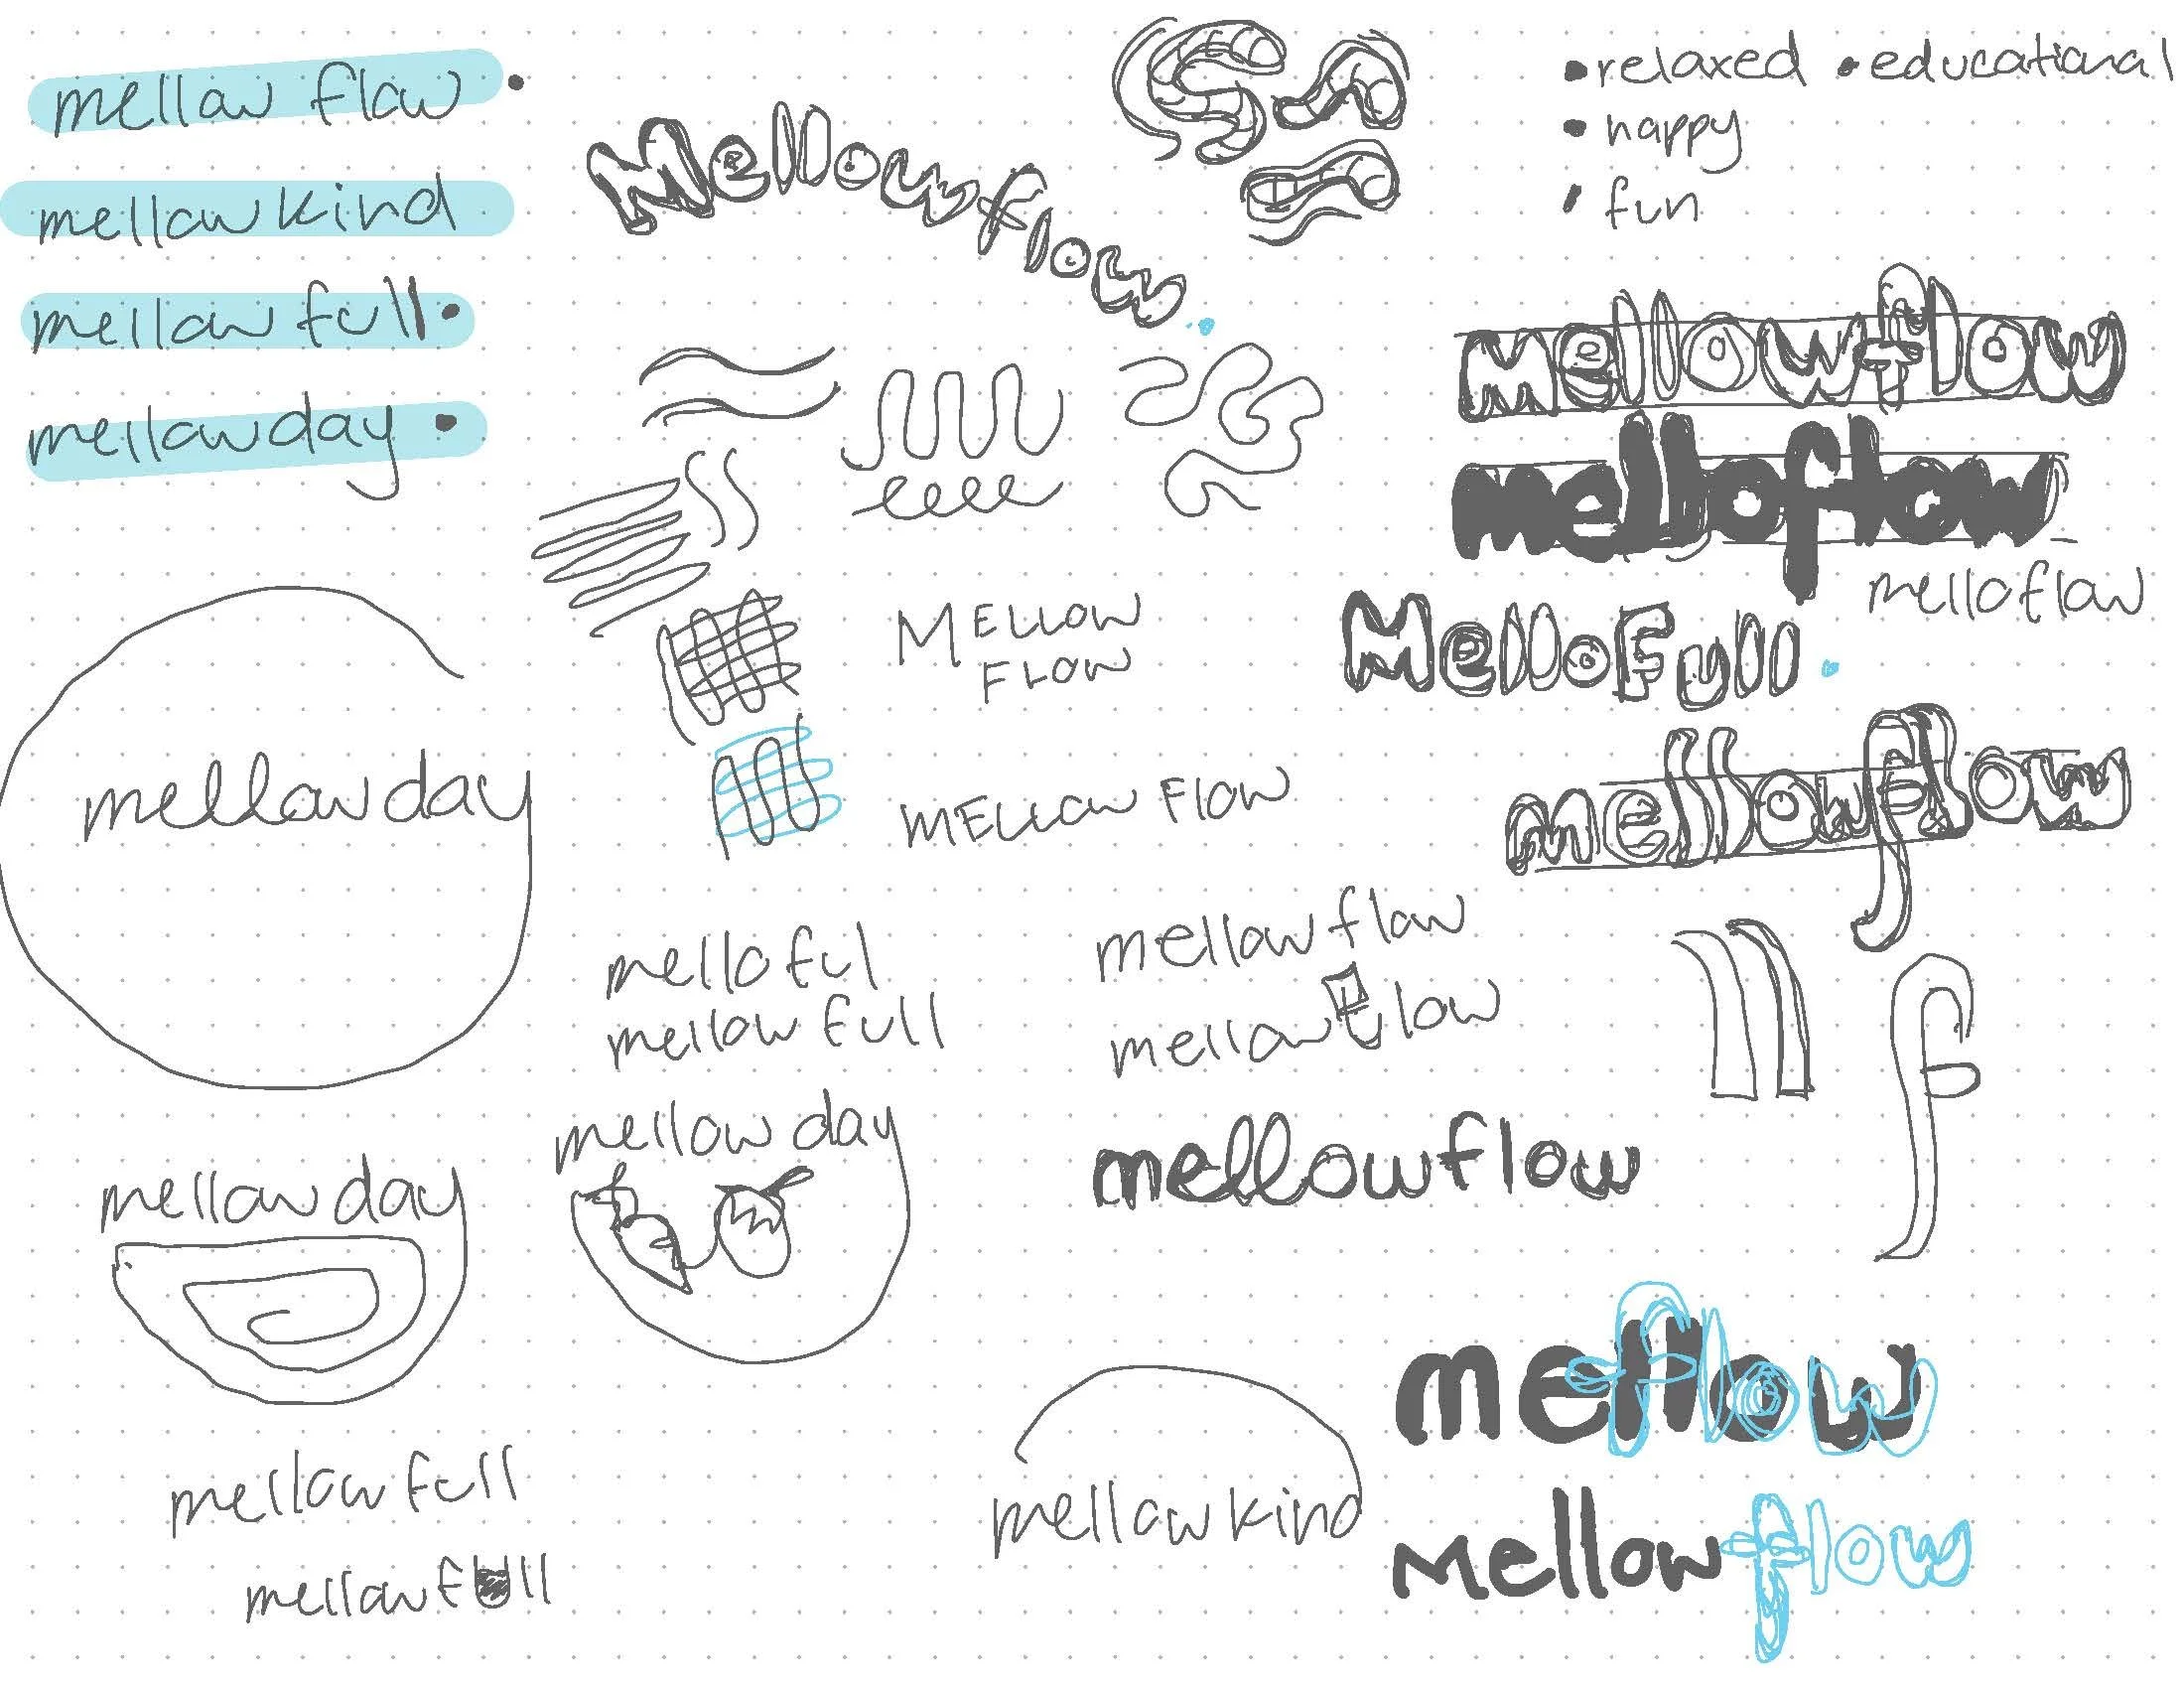 mellow flow
mellowkind
mellow full
mellowday
Mellowflow
• relaxed • educational
• happy
• fun
mellowflow
melloflow
melloflow
MelloFull
mellowflow
MELLOW
FLOW
MELLOW FLOW
mellowday
melloful
mellowfull
mellowflow
mellowflow
mellowflow
ll
f
mellow day
mellow day
meflow
mellowflow
mellowkind
mellowfull
mellowfull